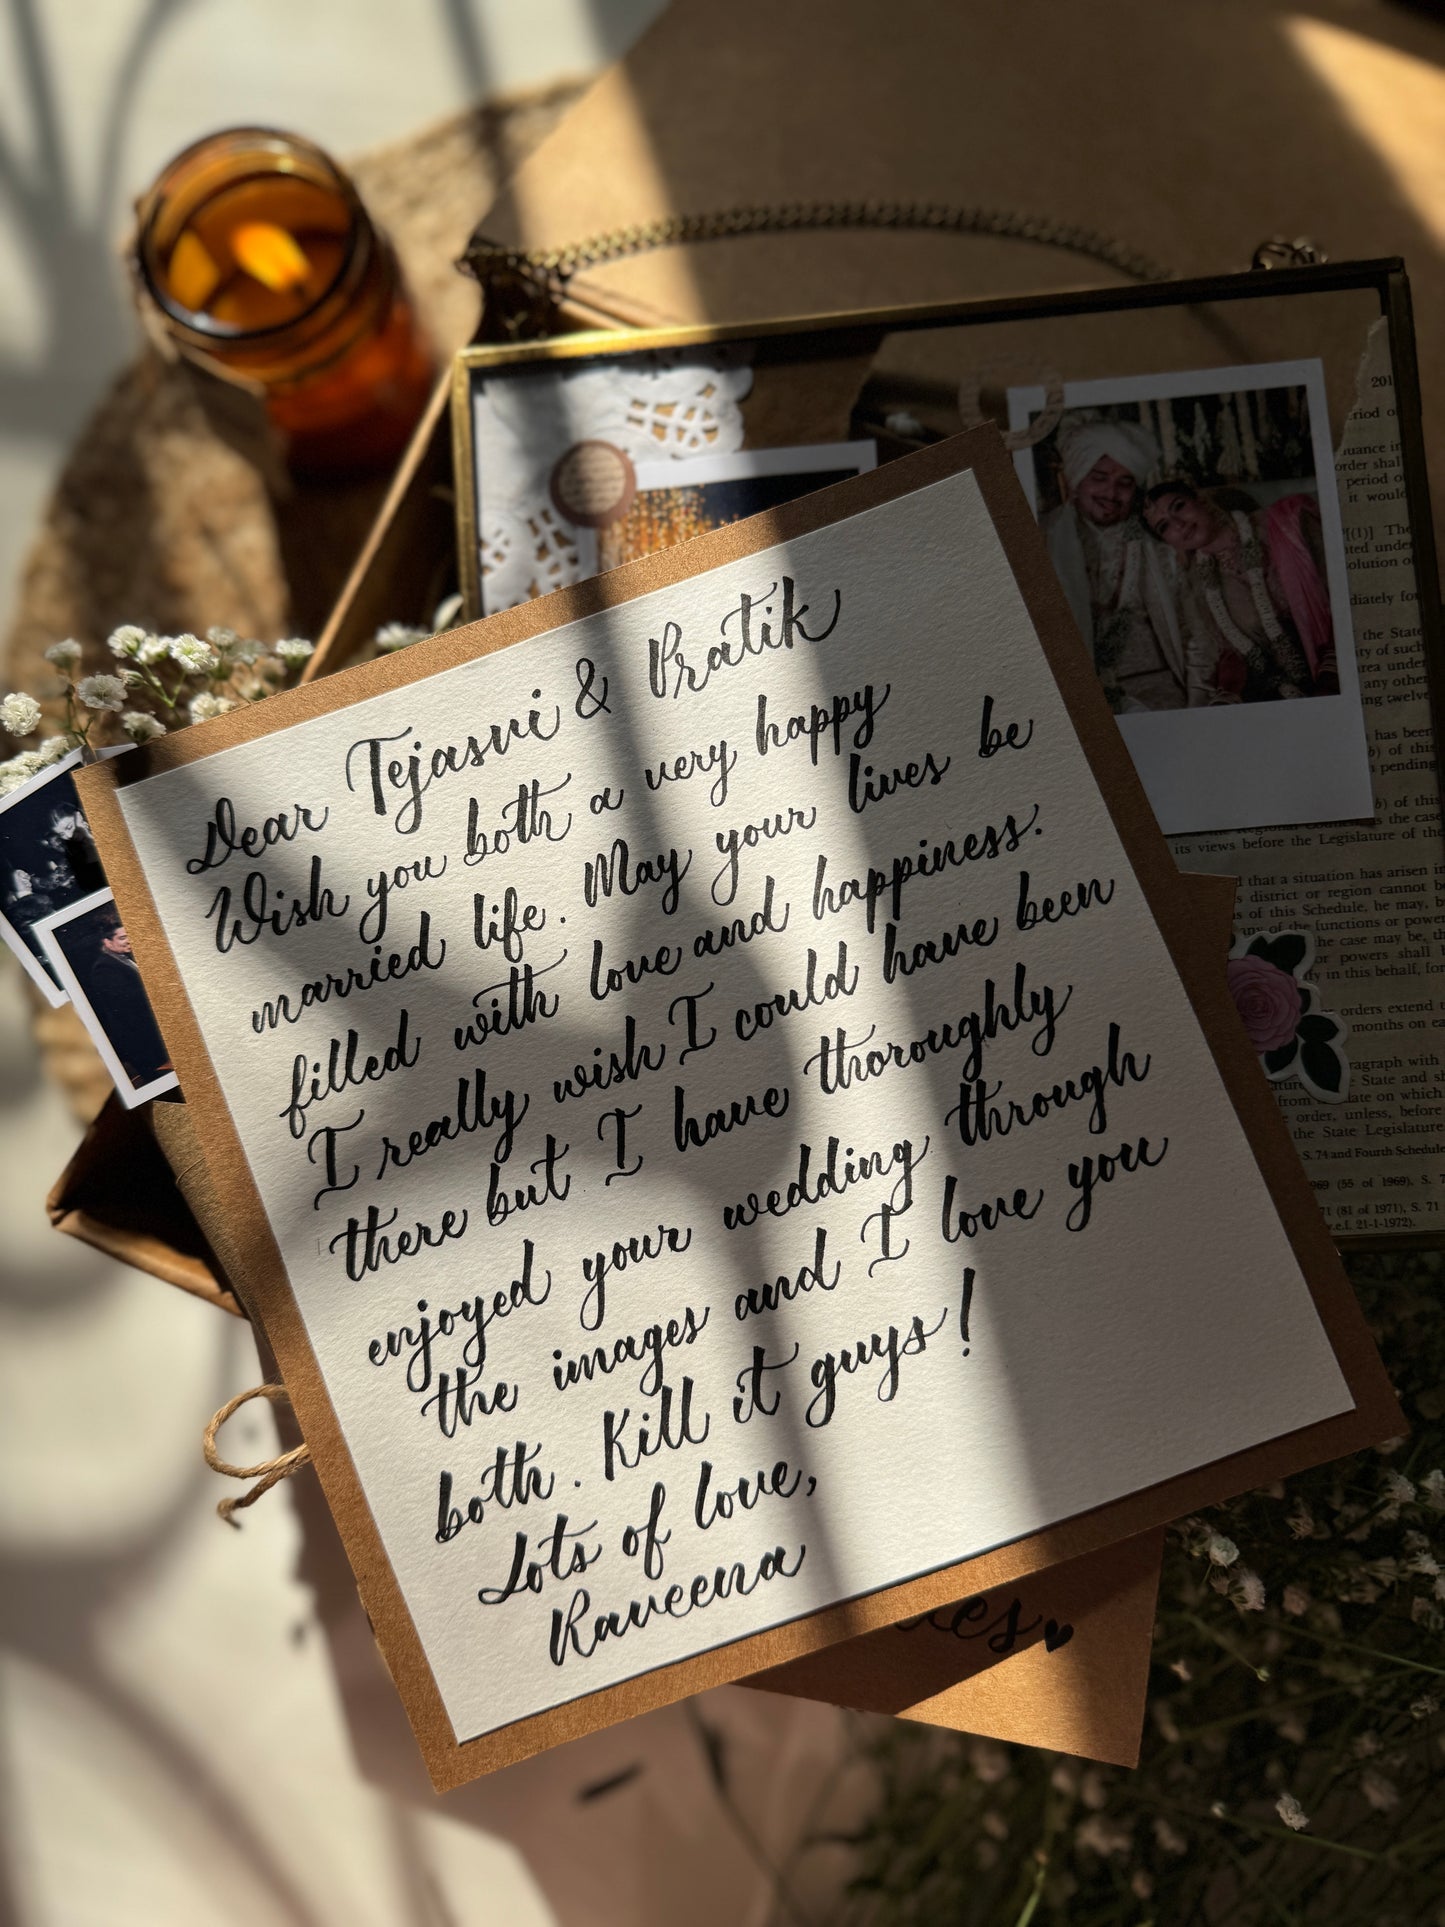 Dear Tejasvi & Pratik
Wish you both a very happy
married life. May your lives be
filled with love and happiness.
I really wish I could have been
there but I have thoroughly
enjoyed your wedding through
the images and I love you
both. Kill it guys!
Lots of love,
Raveena
201
riod of
uance in
order shall
period of
it would
[(1)] The
ted under
olution of
diately for
the State
ty of such
rea under
any other
ing twelve
has been
b) of this
pending
b) of this
as the case
its views before the Legislature of the
d that a situation has arisen in
district or region cannot be
s of this Schedule, he may, by
any of the functions or powers
the case may be, the
or powers shall b
fy in this behalf, for
orders extend
months on ea
ragraph with
State and sh
from date on which
order, unless, before
the State Legislature
S. 74 and Fourth Schedule
969 (55 of 1969), S. 7
71 (81 of 1971), S. 71
w.e.f. 21-1-1972).